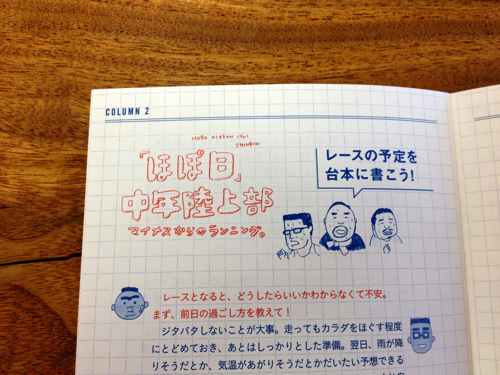 COLUMN 2
HOBO NIKKAN ITOI
SHINBUN
「ほぼ日」
中年陸上部
マイナスからのランニング。
レースの予定を
台本に書こう!
レースとなると、どうしたらいいかわからなくて不安。
まず、前日の過ごし方を教えて!
ジタバタしないことが大事。走ってもカラダをほぐす程度
にとどめておき、あとはしっかりとした準備。翌日、雨が降
りそうだとか、気温があがりそうだとかだいたい予想できる